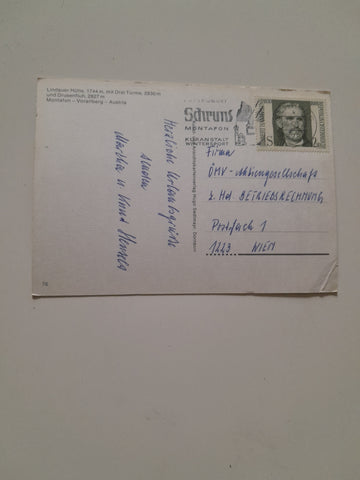 Lindauer Hütte, 1744 m, mit Drei Türme, 2830 m
und Drusenfluh, 2827 m
Montafon - Vorarlberg - Austria
Schruns
MONTAFON
KURANSTALT
WINTERSPORT
S 2
Herzliche Urlaubsgrüße
senden
Firma
ÖMV-Aktiengesellschaft
z. Hd. BETRIEBSRECHNUNG
Postfach 1
1223 WIEN
76